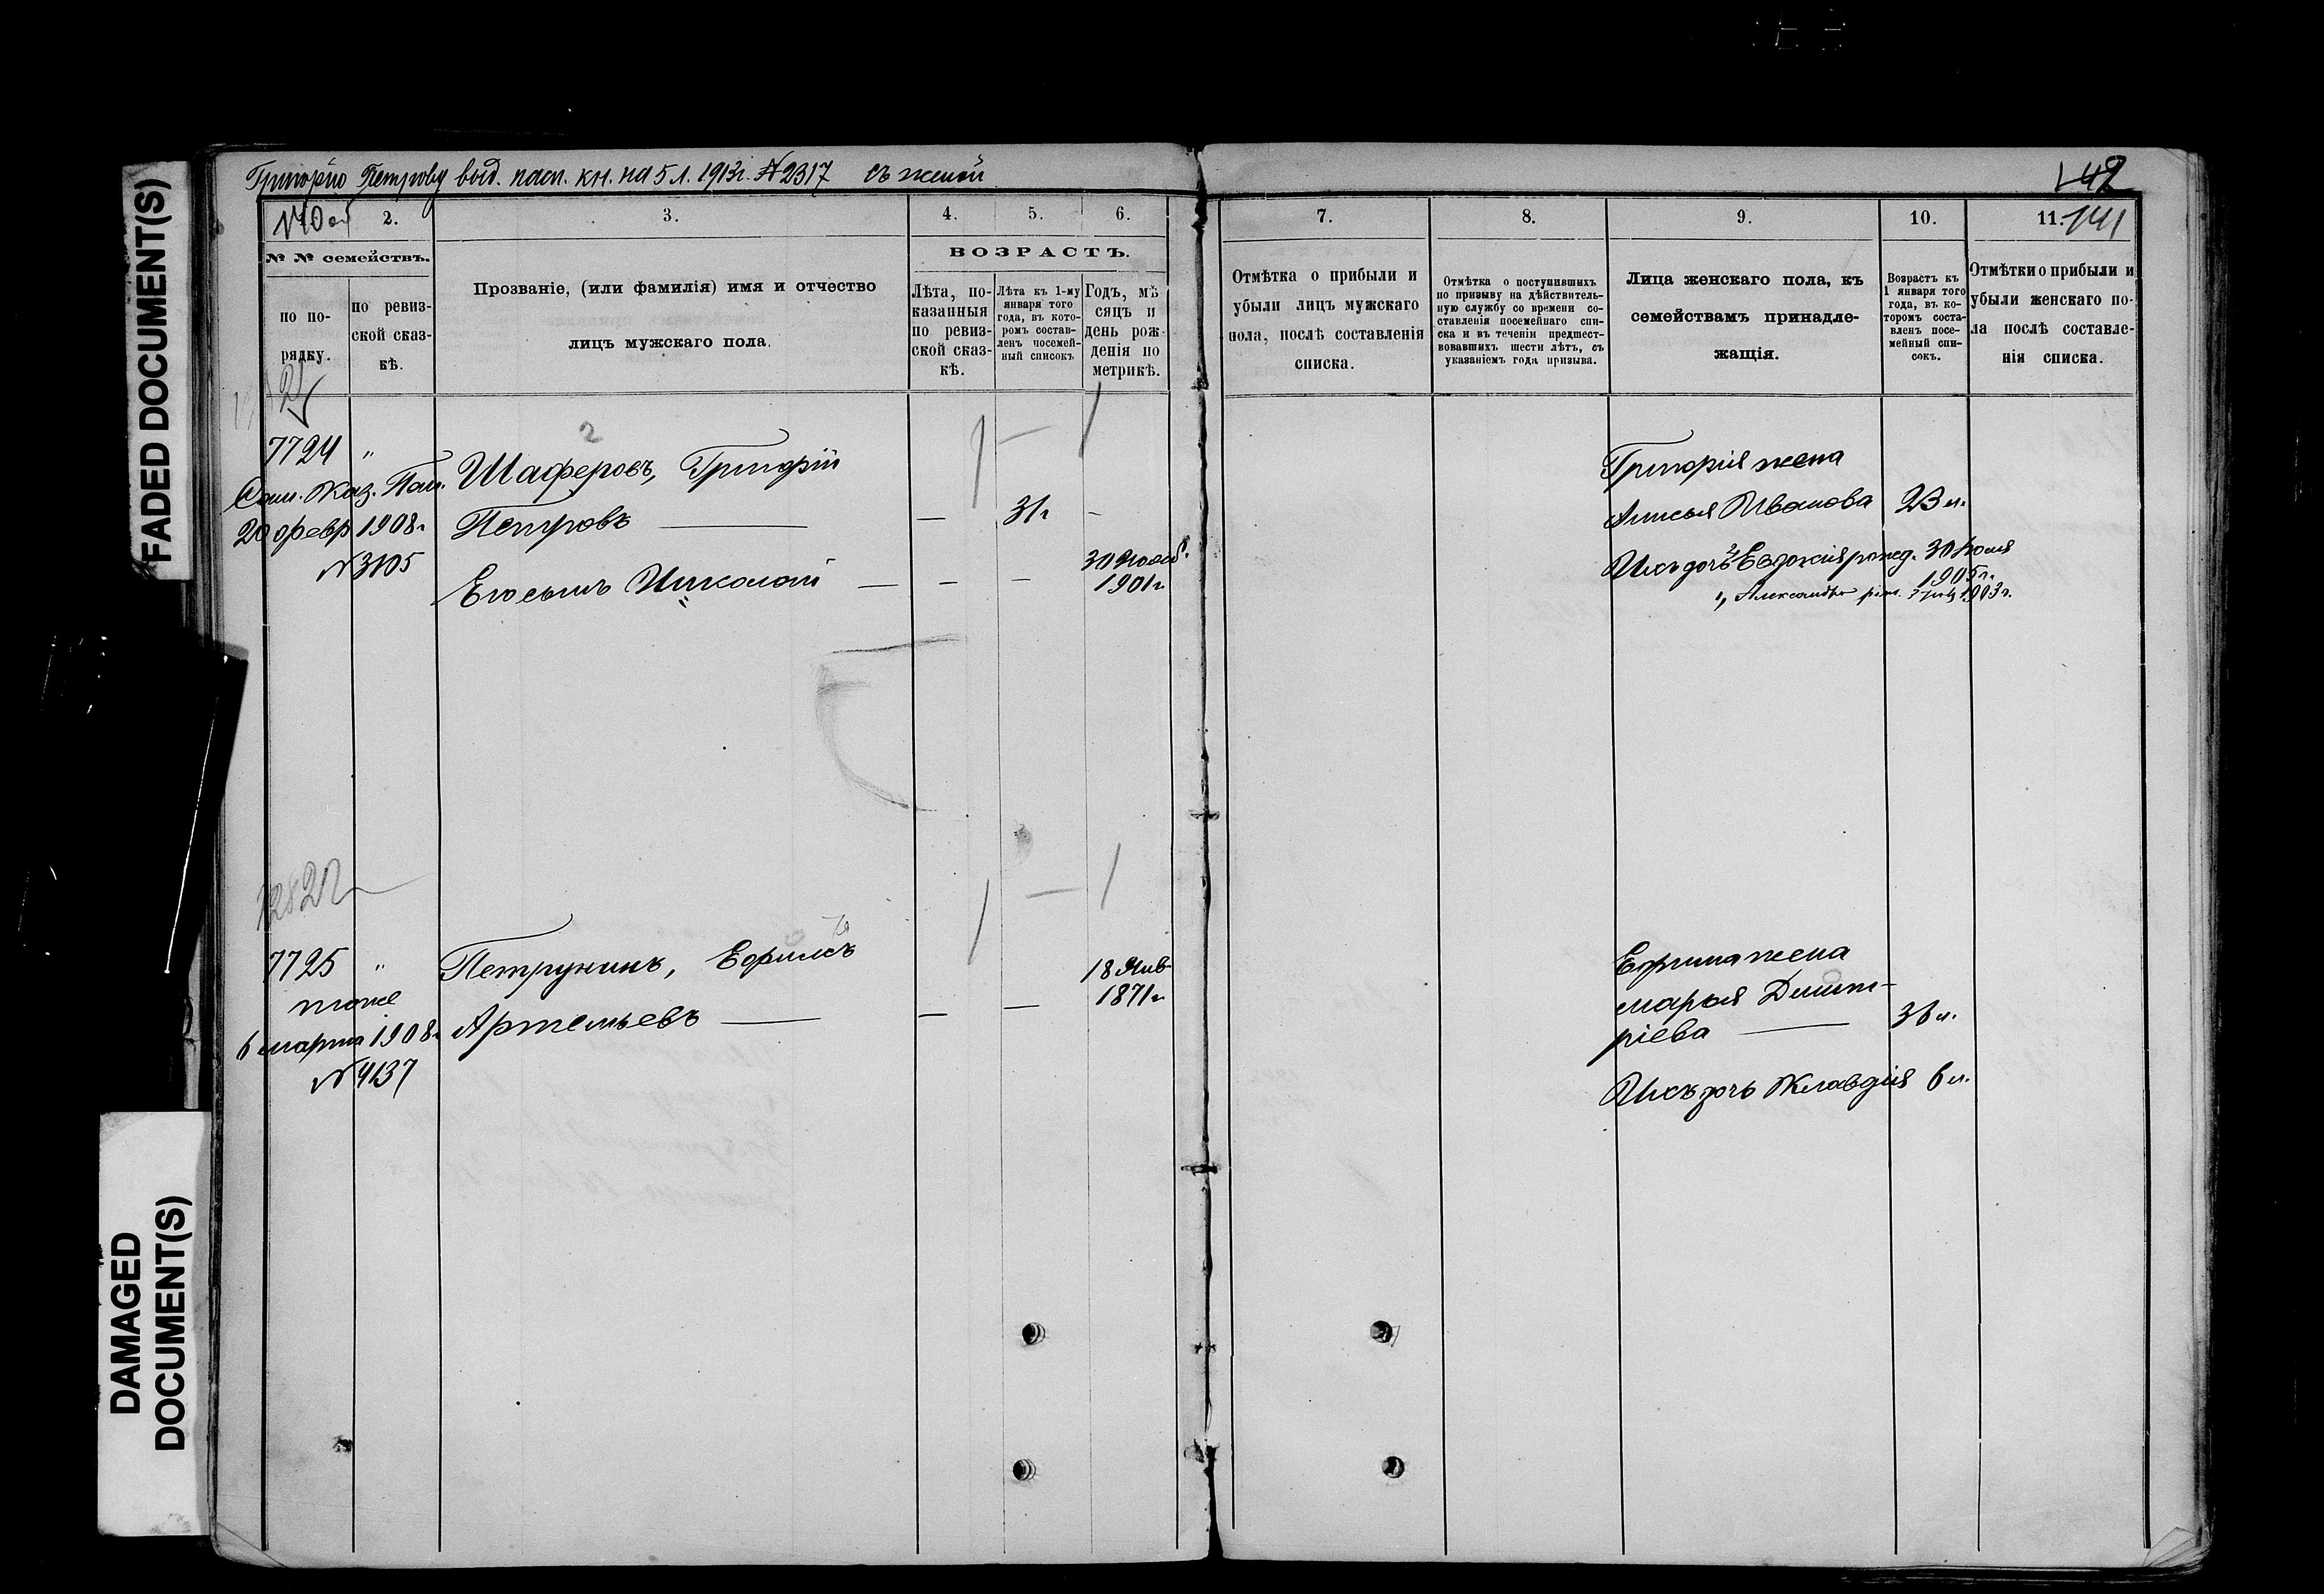 FADED DOCUMENT(S)
DAMAGED
DOCUMENT(S)
Григорію Петрову выд. пасп. кн. на 5 л. 1913 г. № 2317 съ женой
142
141
170 об
2.
3.
4.
5.
6.
№ № семействъ.
по по-
рядку.
по ревиз-
ской сказ-
кѣ.
Прозваніе, (или фамилія) имя и отчество
лицъ мужскаго пола.
ВОЗРАСТЪ.
Лѣта, по-
казанныя
по ревиз-
ской сказ-
кѣ.
Лѣта къ 1-му
января того
года, въ кото-
ромъ состав-
ленъ посемей-
ный списокъ
Годъ, мѣ
сяцъ и
день рож-
денія по
метрикѣ.
7.
8.
9.
10.
11.
Отмѣтка о прибыли и
убыли лицъ мужскаго
пола, послѣ составленія
списка.
Отмѣтка о поступившихъ
по призыву на дѣйствитель-
ную службу со времени со-
ставленія посемейнаго спи-
ска и въ теченіи предшест-
вовавшихъ шести лѣтъ, съ
указаніемъ года призыва.
Лица женскаго пола, къ
семействамъ принадле-
жащія.
Возрастъ къ
1 января того
года, въ ко-
торомъ соста-
вленъ посе-
мейный спи-
сокъ.
Отмѣтки о прибыли и
убыли женскаго по-
ла послѣ составле-
нія списка.
7724 "
Сам. Каз. Пал.
20 февр 1908 г
№ 3105
2
Шаферовъ, Григорій
Петровъ — — 31 г —
Его сынъ Николай — — — 30 Нояб.
1901 г.
Григорія жена
Анисья Иванова 23 л.
Ихъ дочь Евдокія рожд. 30 Іюля
1905 г.
" Александра 1903 г.
7725 "
тоже
6 марта 1908 г.
№ 4137
Петрунинъ, Ефимъ
Артемьевъ — — —
18 Янв
1871 г
Ефима жена
Марья Димит-
ріева — 36 л.
Ихъ дочь Клавдія 6 л.